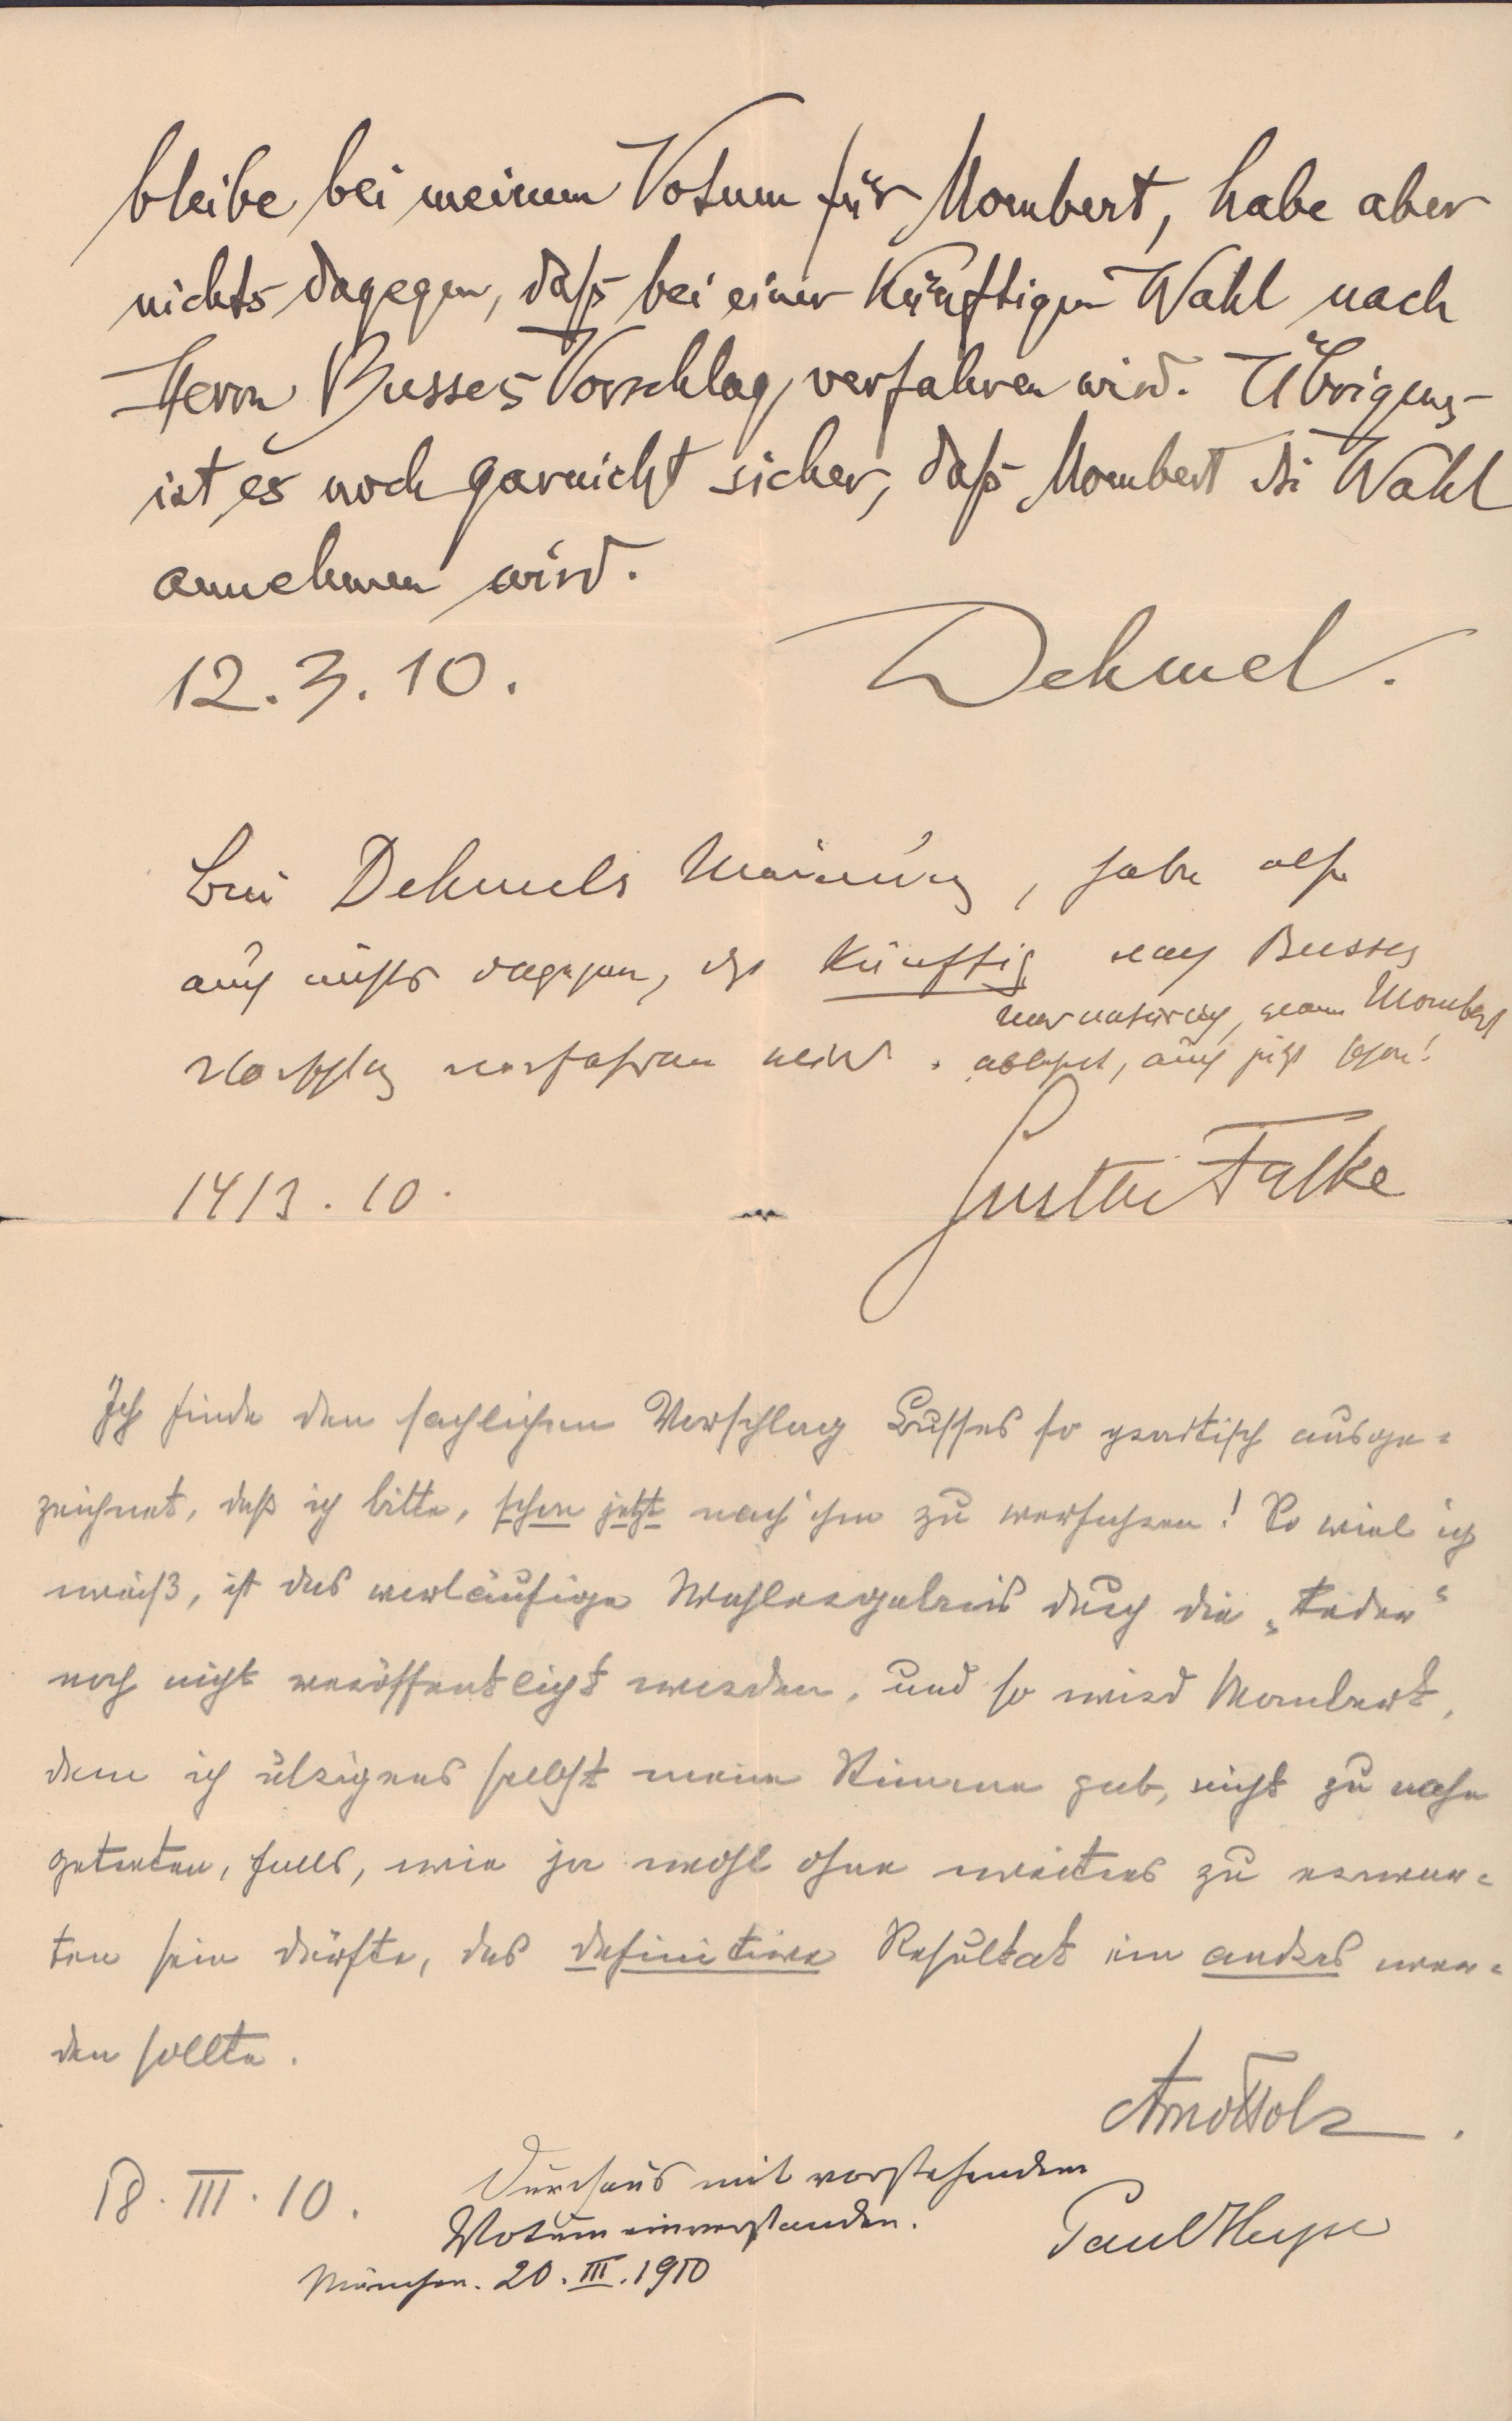 bleibe bei meinem Votum für Mombert, habe aber
nichts dagegen, daß bei einer künftigen Wahl nach
Herrn Busses Vorschlag verfahren wird. Übrigens
ist es noch garnicht sicher, daß Mombert die Wahl
annehmen wird.
12.3.10. Dehmel.
Bin Dehmels Meinung, habe also
auch nichts dagegen, daß künftig nach Busses
Vorschlag verfahren wird.
wenn Mombert
ablehnt, auch jetzt schon!
14/3.10. Gustav Falke
Ich finde den sachlichen Vorschlag Busses so praktisch ausge-
zeichnet, daß ich bitte, schon jetzt nach ihm zu verfahren! So viel ich
weiß, ist das vorläufige Wahlergebnis durch die „Feder“
noch nicht veröffentlicht worden, und so wird Mombert,
dem ich übrigens selbst meine Stimme gab, nicht zu nahe
getreten, falls, wie ja wohl ohne weitres zu erwar-
ten sein dürfte, das definitive Resultat ein andres wer-
den sollte.
Arno Holz.
18.III.10.
Durchaus mit vorstehendem
Votum einverstanden.
Paul Heyse
München. 20.III.1910